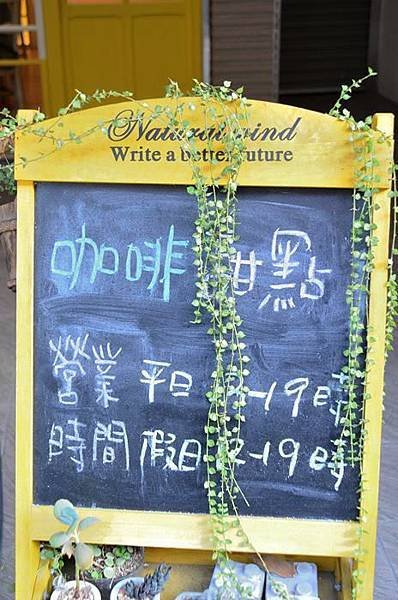 Natural wind
Write a better future
咖啡 甜點
營業 平日 -19時
時間 假日 2-19時